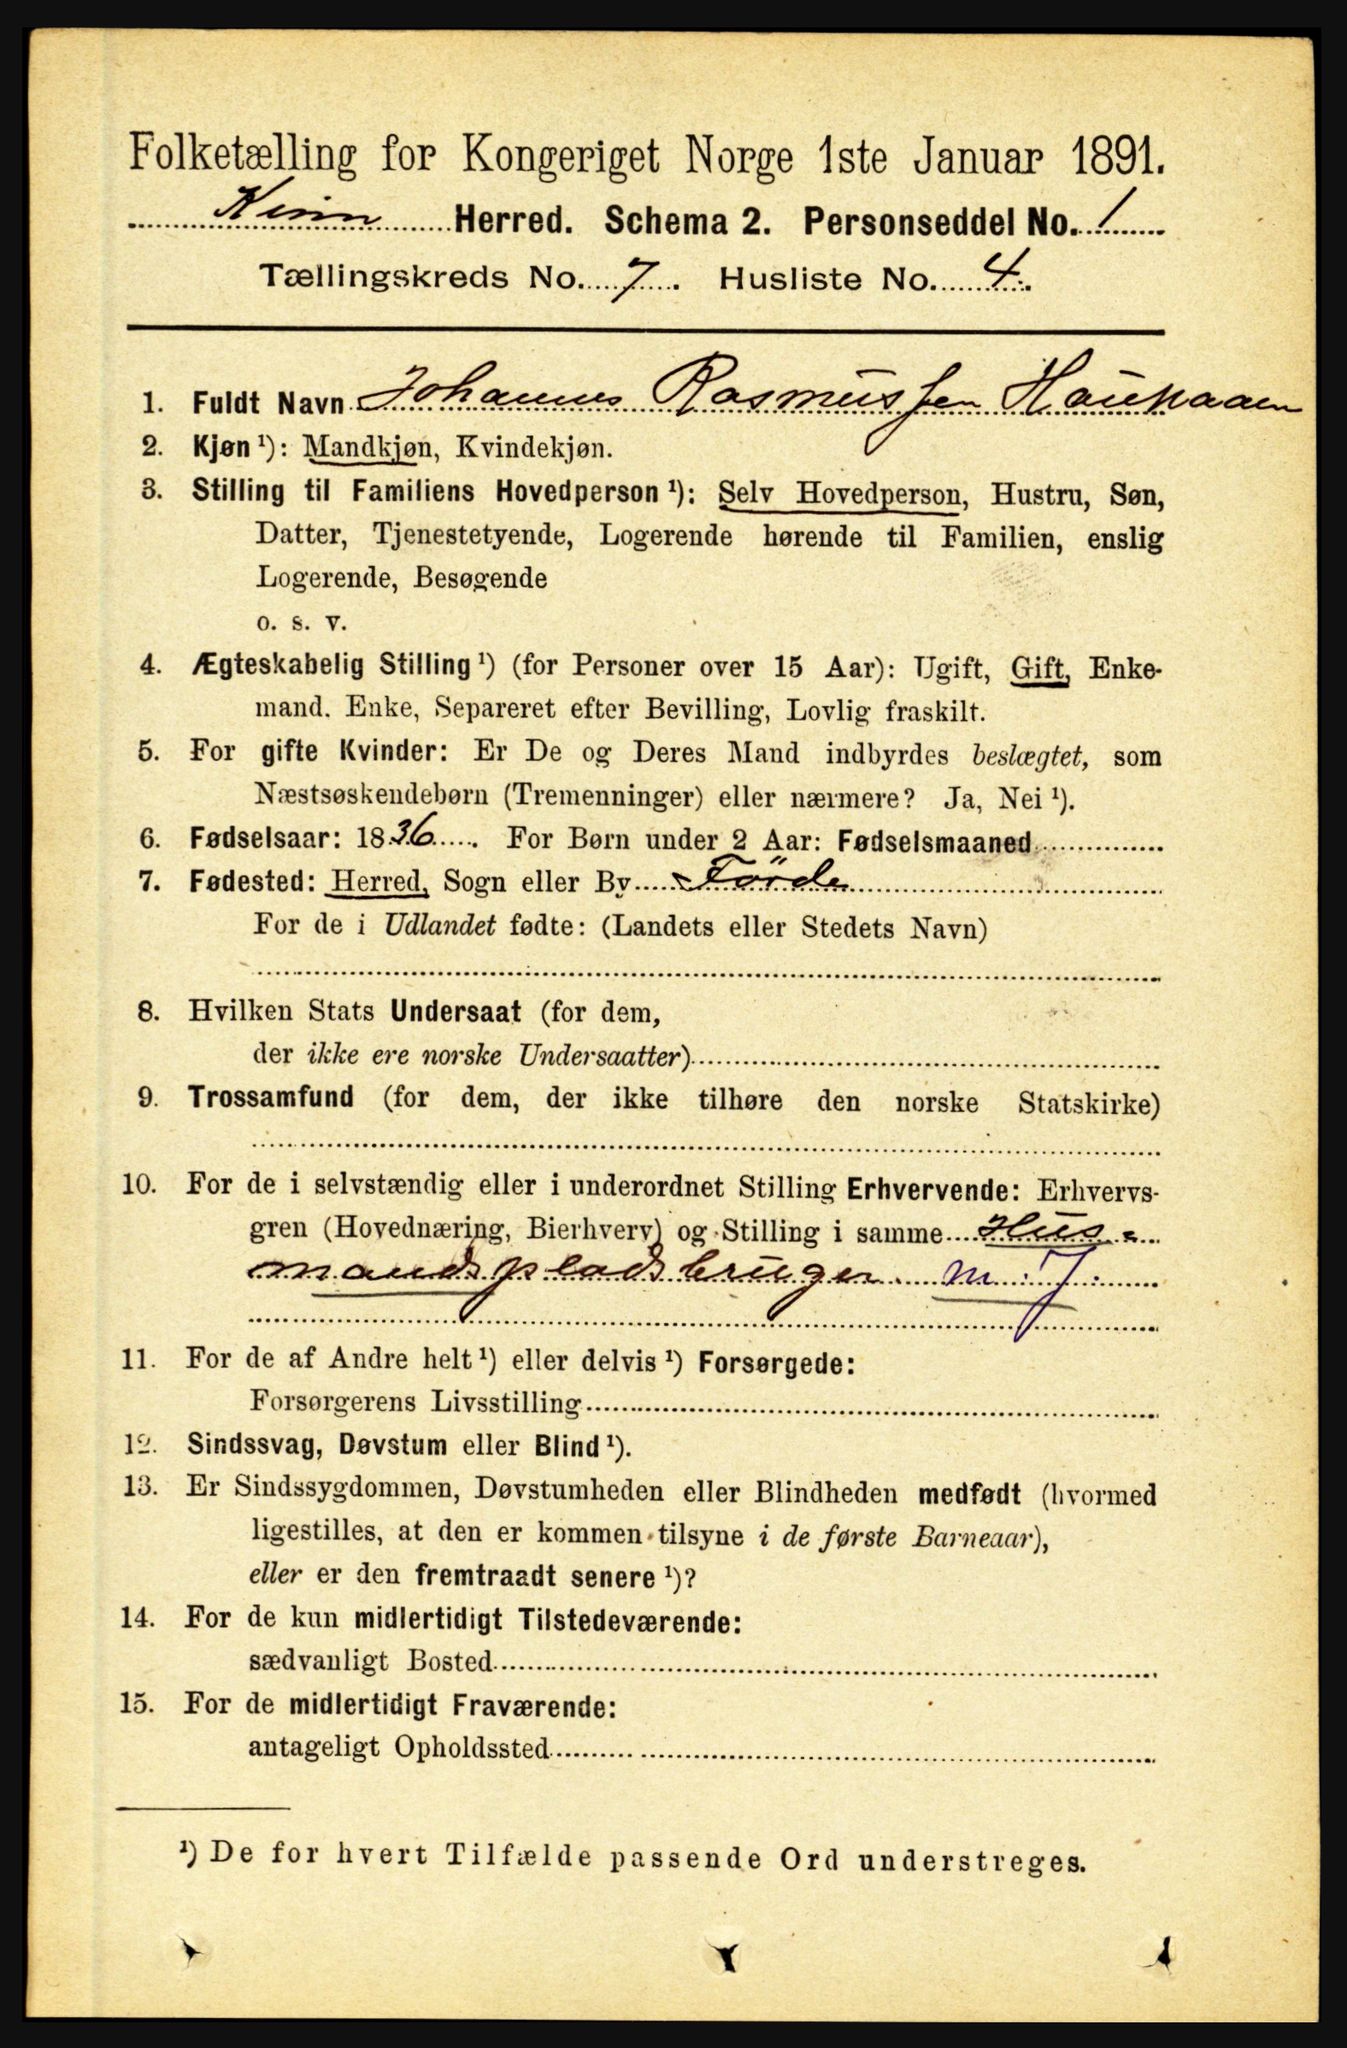 Folketælling for Kongeriget Norge 1ste Januar 1891.
Kinn Herred. Schema 2. Personseddel No. 1
Tællingskreds No. 7. Husliste No. 4.
1. Fuldt Navn Johannes Rasmussen
2. Kjøn ¹): Mandkjøn, Kvindekjøn.
3. Stilling til Familiens Hovedperson ¹): Selv Hovedperson, Hustru, Søn,
Datter, Tjenestetyende, Logerende hørende til Familien, enslig
Logerende, Besøgende
o. s. v.
4. Ægteskabelig Stilling ¹) (for Personer over 15 Aar): Ugift, Gift, Enke-
mand. Enke, Separeret efter Bevilling, Lovlig fraskilt.
5. For gifte Kvinder: Er De og Deres Mand indbyrdes beslægtet, som
Næstsøskendebørn (Tremenninger) eller nærmere? Ja, Nei ¹).
6. Fødselsaar: 1836. For Børn under 2 Aar: Fødselsmaaned
7. Fødested: Herred, Sogn eller By Förde
For de i Udlandet fødte: (Landets eller Stedets Navn)
8. Hvilken Stats Undersaat (for dem,
der ikke ere norske Undersaatter)
9. Trossamfund (for dem, der ikke tilhøre den norske Statskirke)
10. For de i selvstændig eller i underordnet Stilling Erhvervende: Erhvervs-
gren (Hovednæring, Bierhverv) og Stilling i samme Hus-
mandspladsbruger m. J.
11. For de af Andre helt ¹) eller delvis ¹) Forsørgede:
Forsørgerens Livsstilling
12. Sindssvag, Døvstum eller Blind ¹).
13. Er Sindssygdommen, Døvstumheden eller Blindheden medfødt (hvormed
ligestilles, at den er kommen tilsyne i de første Barneaar),
eller er den fremtraadt senere ¹)?
14. For de kun midlertidigt Tilstedeværende:
sædvanligt Bosted
15. For de midlertidigt Fraværende:
antageligt Opholdssted
¹) De for hvert Tilfælde passende Ord understreges.